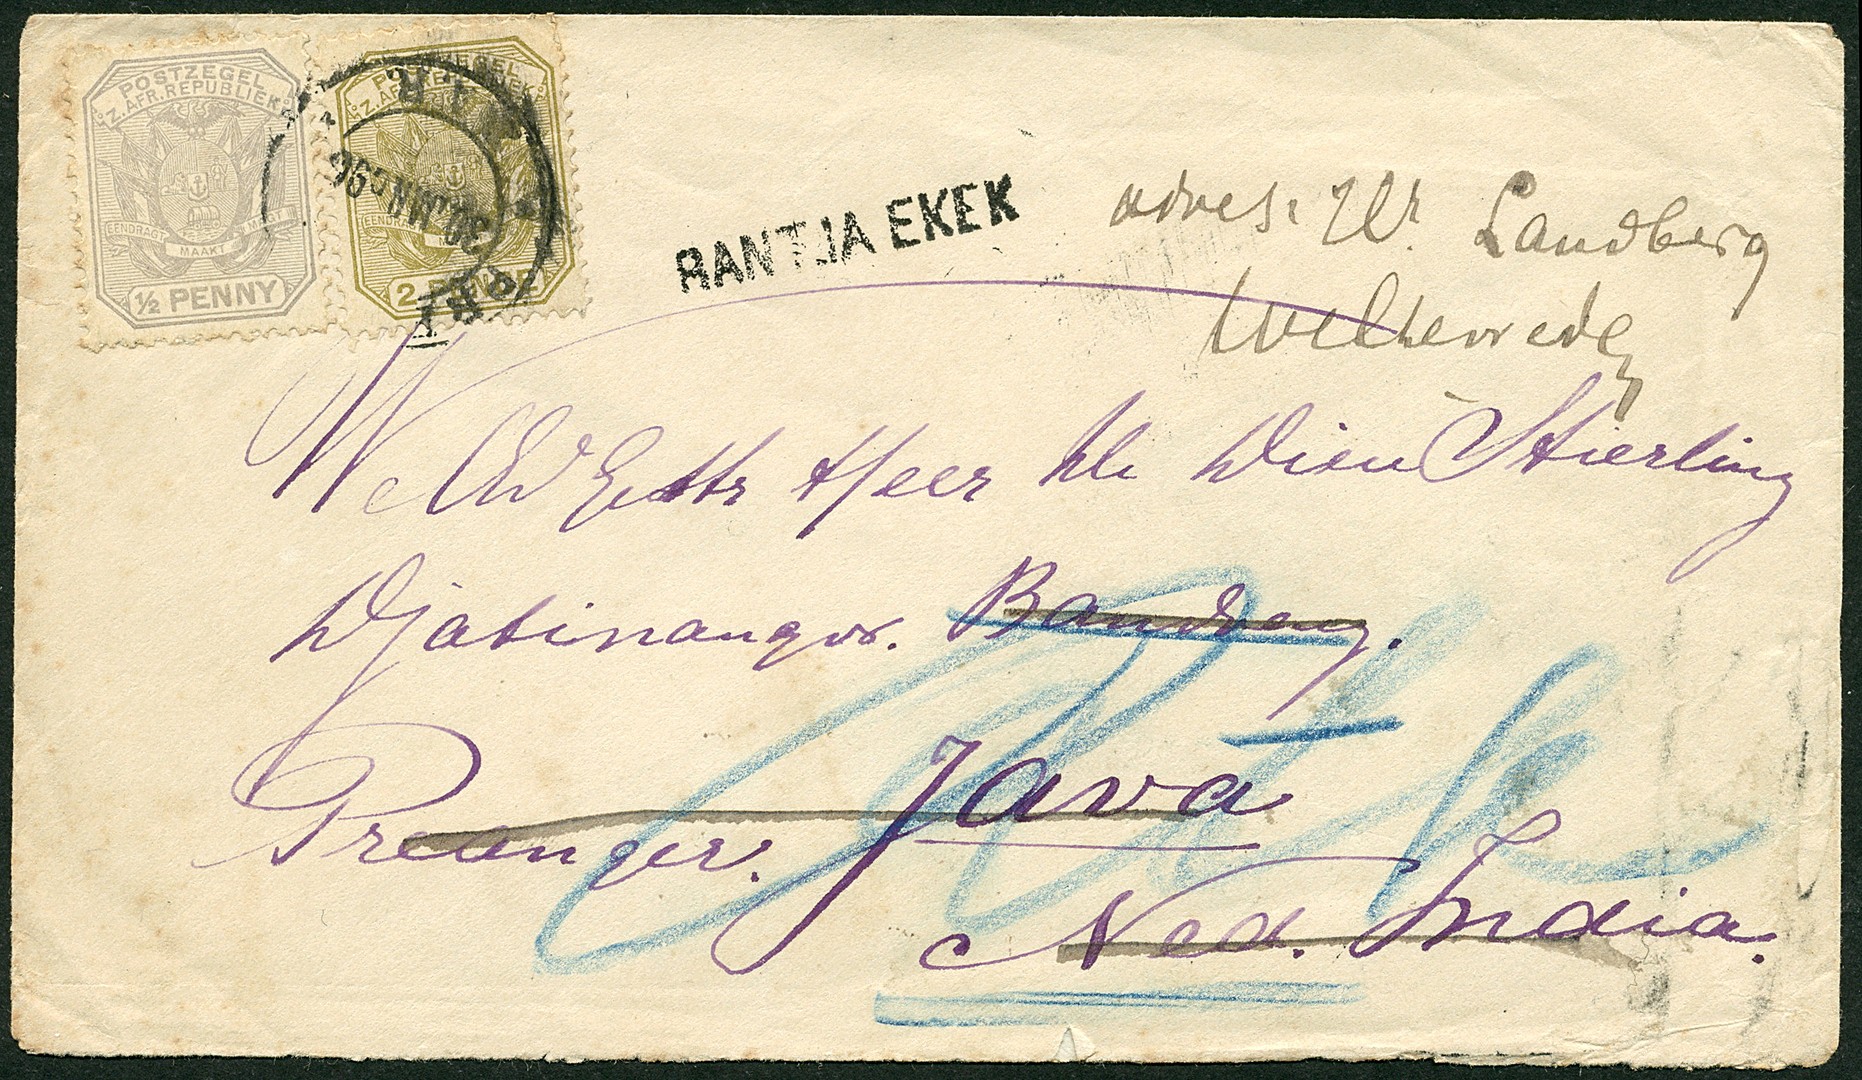 POSTZEGEL
Z.AFR.REPUBLIEK
EENDRAGT MAAKT MAGT
½ PENNY
POSTZEGEL
Z.AFR.REPUBLIEK
EENDRAGT
2 PENCE
30 96
RANTJA EKEK
adres: Mr. Landberg
Weltevreden
Heer Stierling
Djatinangor. Bandoeng.
Preanger. Java
Ned. India.